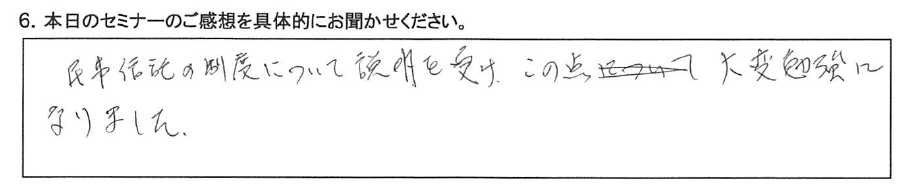 6. 本日のセミナーのご感想を具体的にお聞かせください。
民事信託の制度について説明を受け、この点 大変勉強に
なりました。